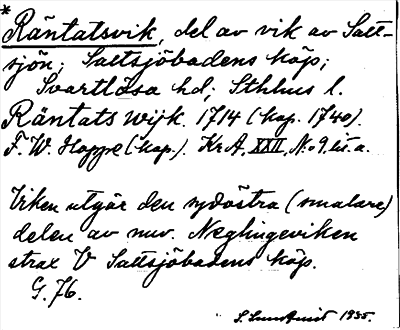 * Räntatsvik, del av vik av Salt-
sjön; Saltsjöbadens köp;
Svartlösa hd; Sthlms l.
Räntats wijk. 1714 (kop. 1740).
F. W. Hoppe (kop.). Kr A. XXII, No 9 lit a.
Viken utgör den sydöstra (smalare)
delen av nuv. Neglingeviken
strax V Saltsjöbadens köp.
G. 76.
S. Lundqvist 1935.